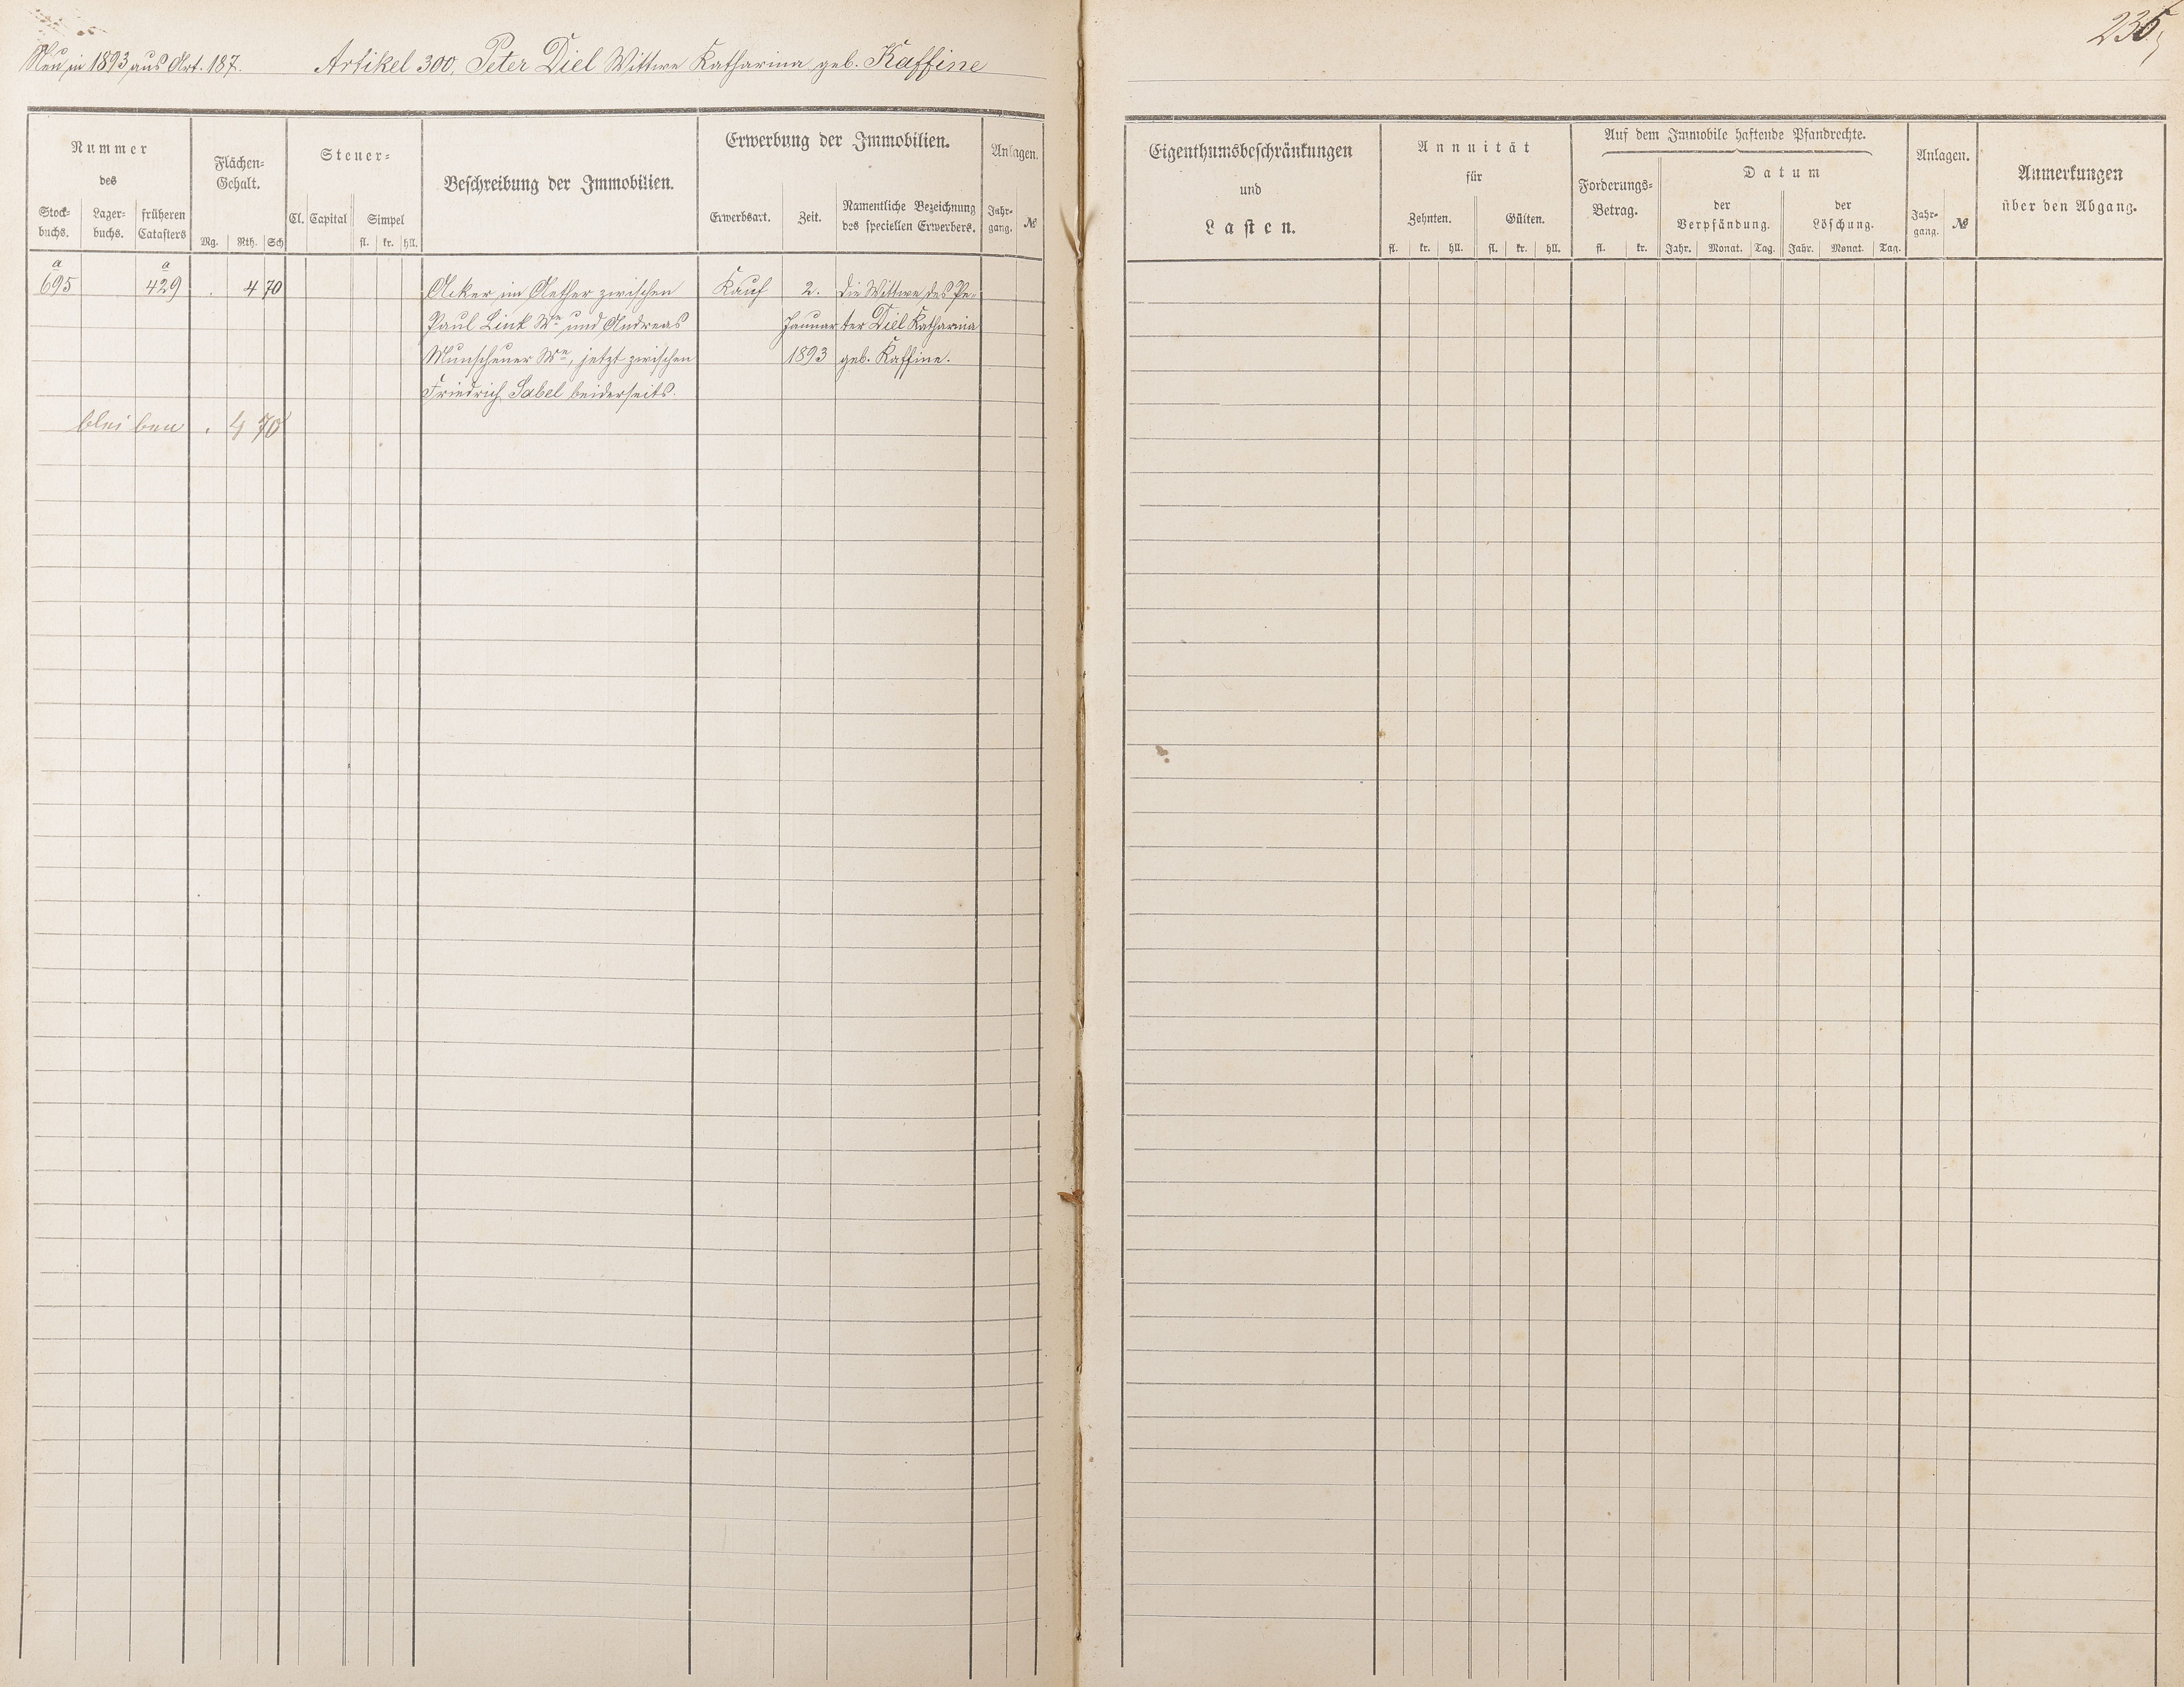 235,
Neu in 1893 aus Art. 187. Artikel 300. Peter Diel Wittwe Katharina geb. Kaffine
Nummer
des
Stock-
buchs.
Lager-
buchs.
früheren
Catasters
Flächen-
Gehalt.
Mg. Rth. Sch
Steuer-
Cl. Capital Simpel
fl. kr. hll.
Beschreibung der Immobilien.
Erwerbung der Immobilien.
Erwerbsart. Zeit.
Namentliche Bezeichnung
des speciellen Erwerbers.
Anlagen.
Jahr-
gang.
№
Eigenthumsbeschränkungen
und
Lasten.
Annuität
für
Zehnten. Gülten.
fl. kr. hll. fl. kr. hll.
Auf dem Immobile haftende Pfandrechte.
Forderungs-
Betrag.
fl. kr.
Datum
der
Verpfändung.
Jahr. Monat. Tag.
der
Löschung.
Jahr. Monat. Tag.
Anlagen.
Jahr-
gang.
№
Anmerkungen
über den Abgang.
a a
695 429 . 4 70 Acker im zwischen Kauf 2. die Wittwe des Pe-
Paul Link We und Andreas Januar ter Diel Katharina
Munscheuer We, jetzt zwischen 1893 geb. Kaffine.
Friedrich Sabel beiderseits.
bleiben . 4 70